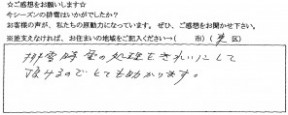 ☆ご感想をお願いします☆
今シーズンの排雪はいかがでしたか?
お客様の声が、私たちの原動力になっています。ぜひ、ご感想をお聞かせ下さい。
※差支えなければ、お住まいの地域をご記入ください→( 市)( 東 区)
排雪時雪の処理をきれいにして
頂けるのでとても助かります。